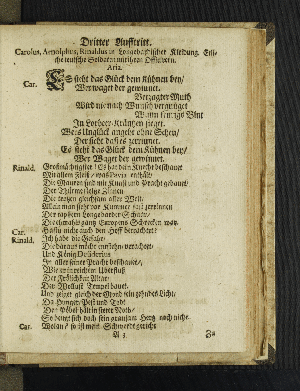 Dritter Aufftritt.
Carolus, Arnolphus, Rinaldus in Longobardischer Kleidung. Etli-
che teutsche Soldaten mit ihren Officirern.
Aria.
Car. Es steht das Glück dem kühnen bey/
Wer waget der gewinnet.
Verzagter Muth
Wird nie nach Wunsch vergnüget
Wann feurigs Blut
In Lorbeer-Kräntzen sieget.
Wers Unglück angeht ohne Scheu/
Der sieht daß es zerrinnet.
Es steht das Glück dem Kühnen bey/
Wer Waget der gewinnet.
Rinald. Großmächtigster! Es hat dein Knecht beschauet
Mit allem Fleiß/ was Pavia enthält/
Die Mauren sind mit Kunst und Pracht gebauet/
Der Thürme Spitze Zinnen
Die tragen gleichsam aller Welt/
Allein man sieht vor Kummer fast zerrinnen
Der tapfern Longobarden Schaar/
Die ehmals gantz Europens Schrecken war.
Car. Hastu nicht auch den Hoff betrachtet?
Rinald. Ich habe die Gefahr/
Die daraus möcht entstehn/verachtet/
Und König Desiderius
In aller seiner Pracht beschauet/
Wie er in reichem Uberfluß
Der Frölichkeit Altar/
Der Wollust Tempel bauet.
Und zeiget gleich der Mond sein gehndes Licht/
Da Hunger/Pest und Todt
Den Pövel hält in steter Noth/
So beugt sich doch sein grausam Hertz noch nicht.
Car. Wolan! so ist mein Schwerdt gericht
A 3 Zu